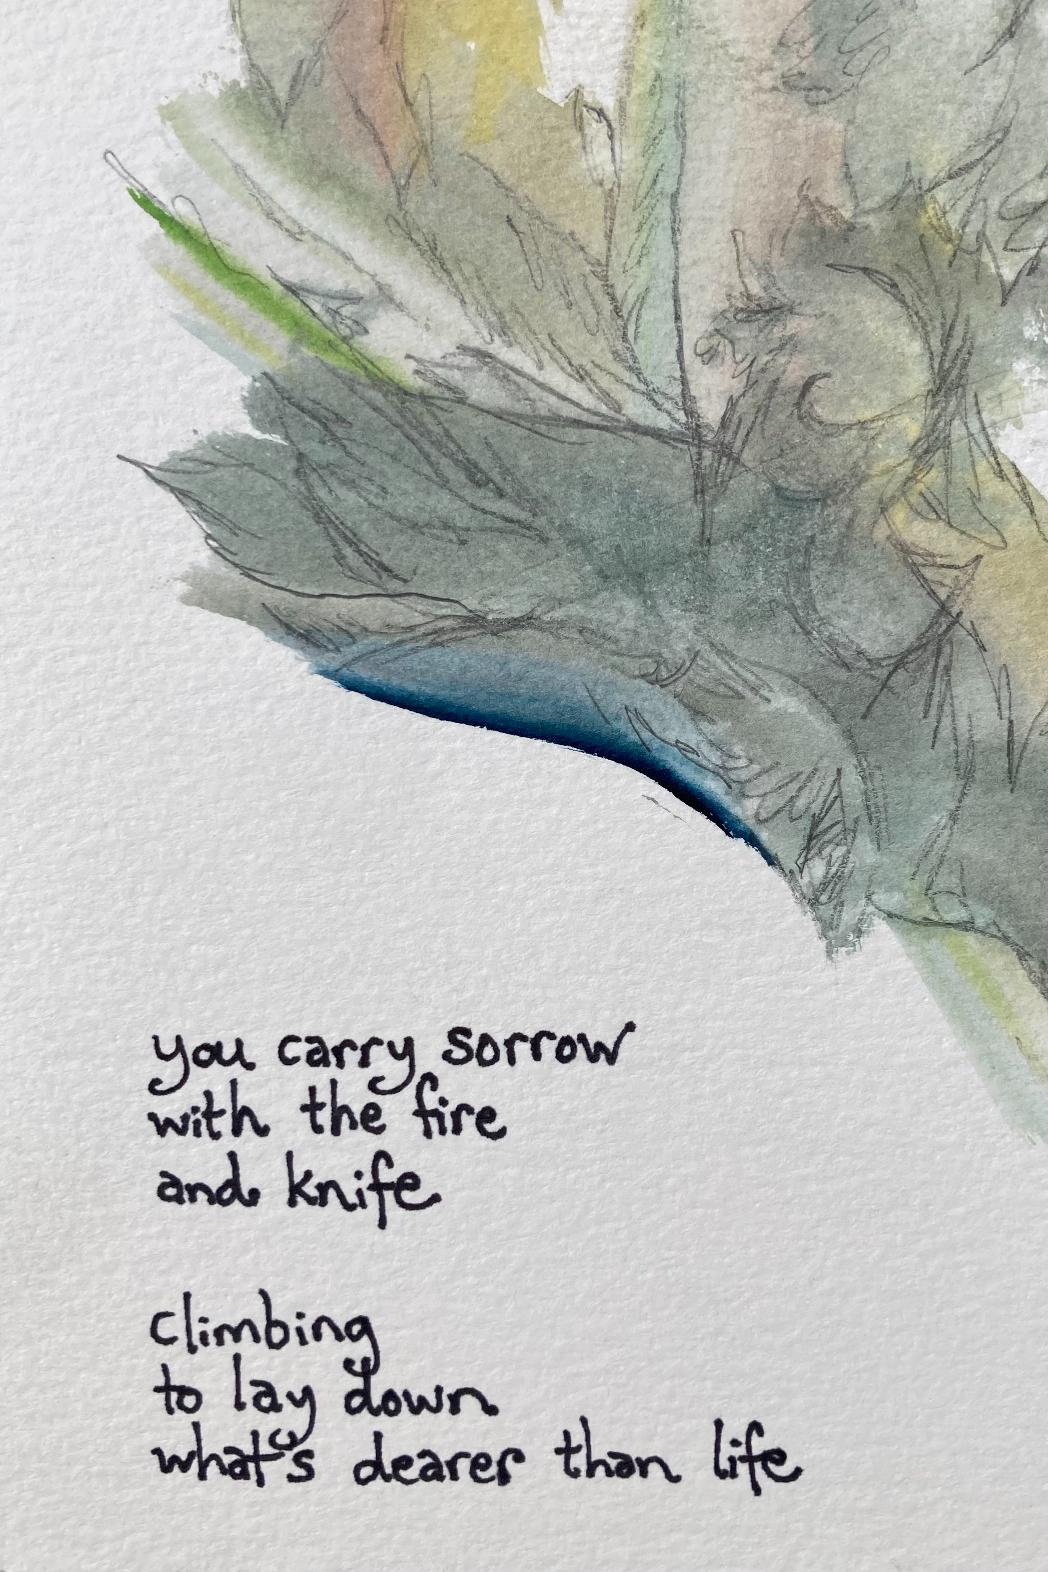 you carry sorrow
with the fire
and knife
climbing
to lay down
what's dearer than life